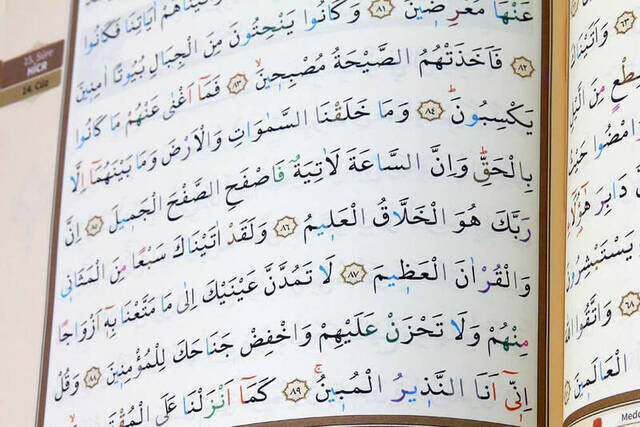 15. Sûre
HİCR
14. Cüz
عَنْهَا مُعْرِضٖينَ ﴿٨١﴾ وَكَانُوا يَنْحِتُونَ مِنَ الْجِبَالِ بُيُوتًا اٰمِنٖينَ
﴿٨٢﴾ فَاَخَذَتْهُمُ الصَّيْحَةُ مُصْبِحٖينَ ﴿٨٣﴾ فَمَٓا اَغْنٰى عَنْهُمْ مَا كَانُوا
يَكْسِبُونَ ﴿٨٤﴾ وَمَا خَلَقْنَا السَّمٰوَاتِ وَالْاَرْضَ وَمَا بَيْنَهُمَٓا اِلَّا
بِالْحَقِّ وَاِنَّ السَّاعَةَ لَاٰتِيَةٌ فَاصْفَحِ الصَّفْحَ الْجَمٖيلَ ﴿٨٥﴾ اِنَّ
رَبَّكَ هُوَ الْخَلَّاقُ الْعَلٖيمُ ﴿٨٦﴾ وَلَقَدْ اٰتَيْنَاكَ سَبْعًا مِنَ الْمَثَانٖي
وَالْقُرْاٰنَ الْعَظٖيمَ ﴿٨٧﴾ لَا تَمُدَّنَّ عَيْنَيْكَ اِلٰى مَا مَتَّعْنَا بِهٖٓ اَزْوَاجًا
مِنْهُمْ وَلَا تَحْزَنْ عَلَيْهِمْ وَاخْفِضْ جَنَاحَكَ لِلْمُؤْمِنٖينَ ﴿٨٨﴾ وَقُلْ
اِنّٖٓي اَنَا النَّذٖيرُ الْمُبٖينُ ﴿٨٩﴾ كَمَٓا اَنْزَلْنَا عَلَى
﴿٦٣﴾ وَاَتَيْنَاكَ
مِنَ الَّيْلِ
وَامْضُوا حَيْثُ
دَابِرَ هٰٓؤُ۬لَٓاءِ
يَسْتَبْشِرُونَ
﴿٦٨﴾ وَاتَّقُوا
الْعَالَمٖينَ